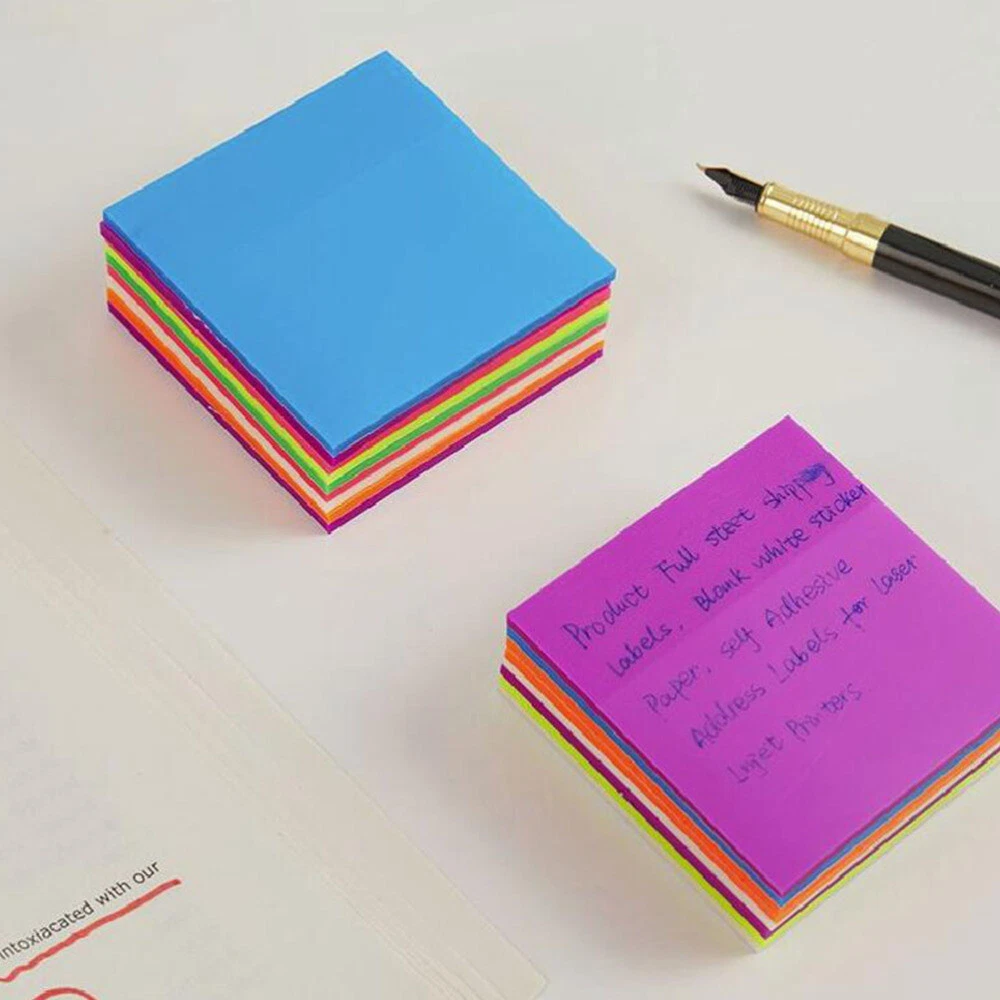 Product Full steet shipping
Labels, Blank white sticker
Paper, self Adhesive
Address Labels for Laser
Injet Printers
intoxiacated with our